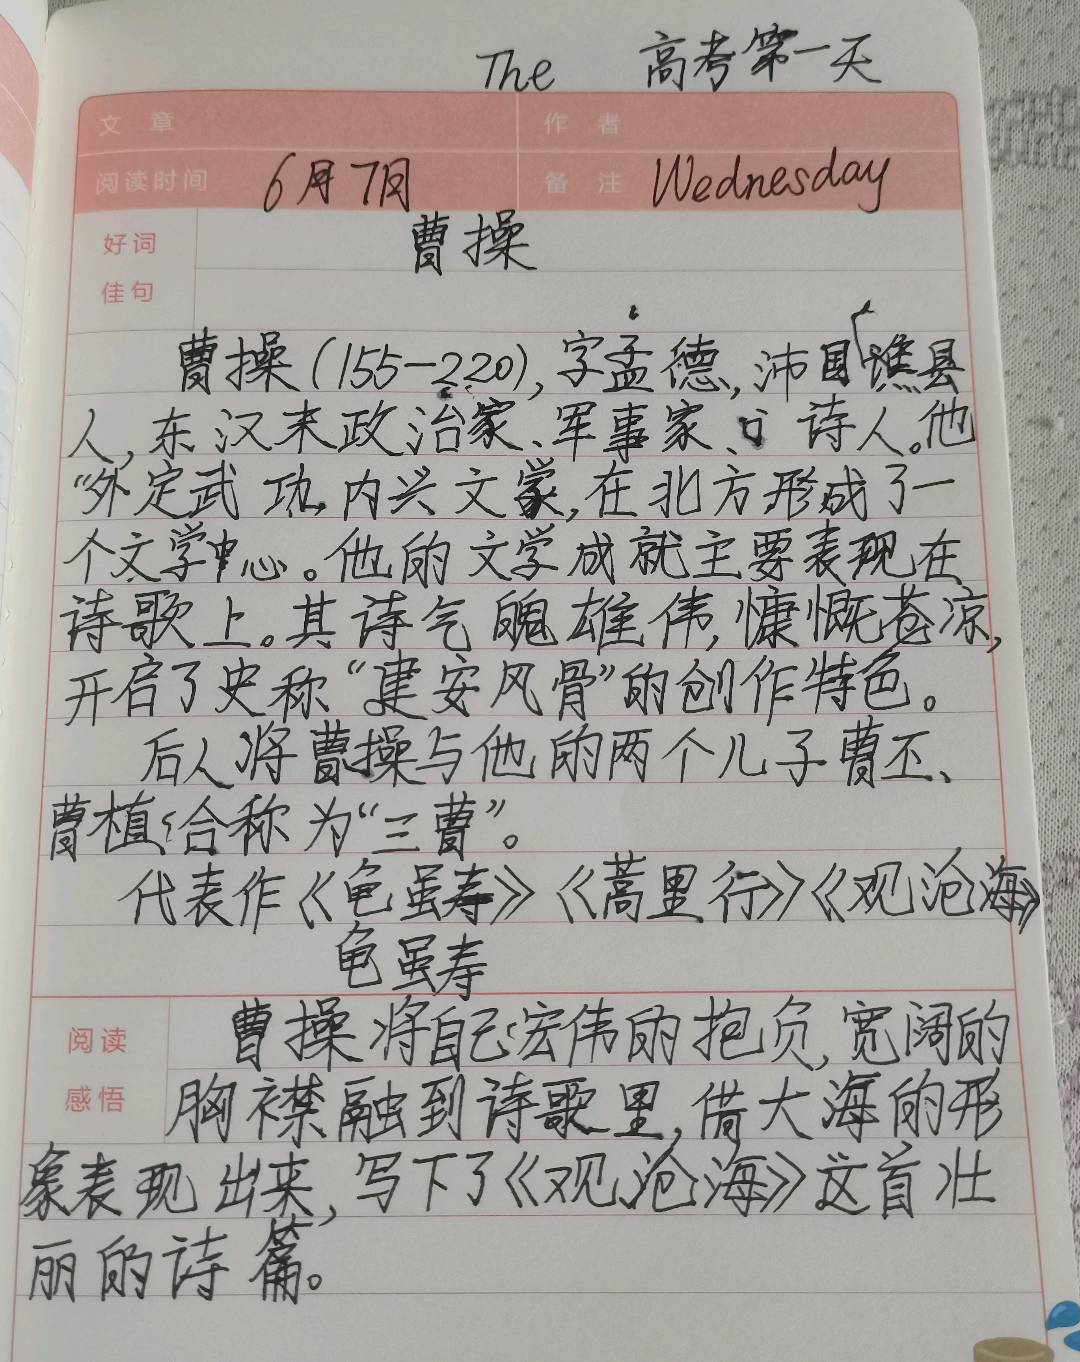 The 高考第一天
文章 作者
阅读时间 6月7日 备注 Wednesday
好词 曹操
佳句
曹操(155-220),字孟德,沛国谯县
人,东汉末政治家、军事家、诗人。他
“外定武功,内兴文学,在北方形成了一
个文学中心。他的文学成就主要表现在
诗歌上。其诗气魄雄伟,慷慨苍凉,
开启了史称“建安风骨”的创作特色。
后人将曹操与他的两个儿子曹丕、
曹植合称为“三曹”。
代表作《龟虽寿》《蒿里行》《观沧海》
龟虽寿
阅读 曹操将自己宏伟的抱负,宽阔的
感悟 胸襟融到诗歌里,借大海的形
象表现出来,写下了《观沧海》这首壮
丽的诗篇。